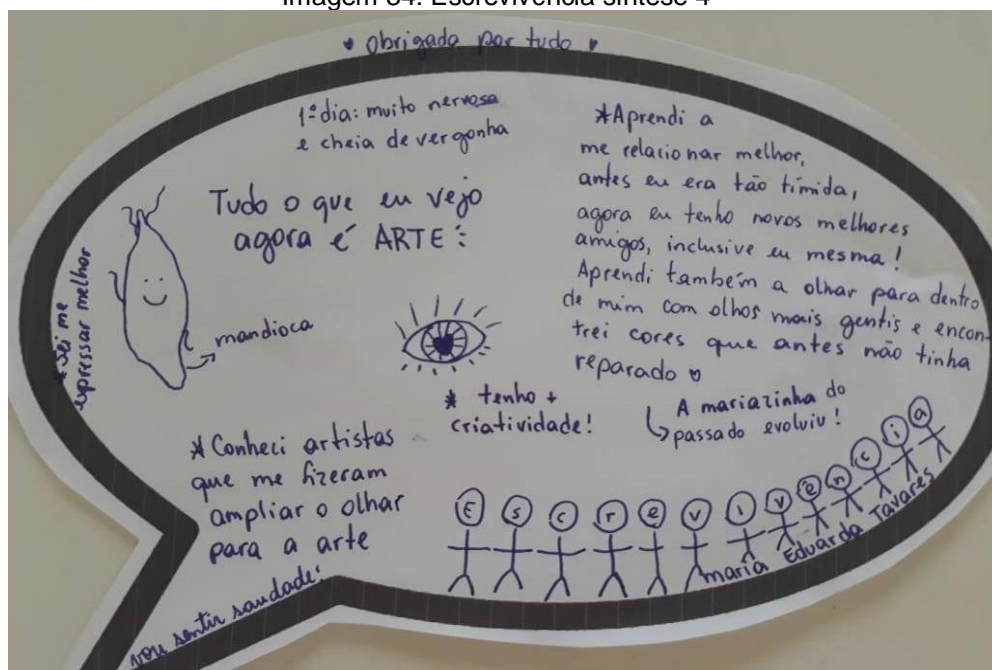 Imagem 84: Escrevivência síntese 4
♥ Obrigada por tudo ♥
1º dia: muito nervosa
e cheia de vergonha
Tudo o que eu vejo
agora é ARTE:
mandioca
*Sei me
expressar melhor
*Aprendi a
me relacionar melhor,
antes eu era tão tímida,
agora eu tenho novos melhores
amigos, inclusive eu mesma!
Aprendi também a olhar para dentro
de mim com olhos mais gentis e encon-
trei cores que antes não tinha
reparado ♥
A mariazinha do
passado evoluiu!
* tenho +
criatividade!
*Conheci artistas
que me fizeram
ampliar o olhar
para a arte
vou sentir saudade!
Escrevivência
maria Eduarda Tavares